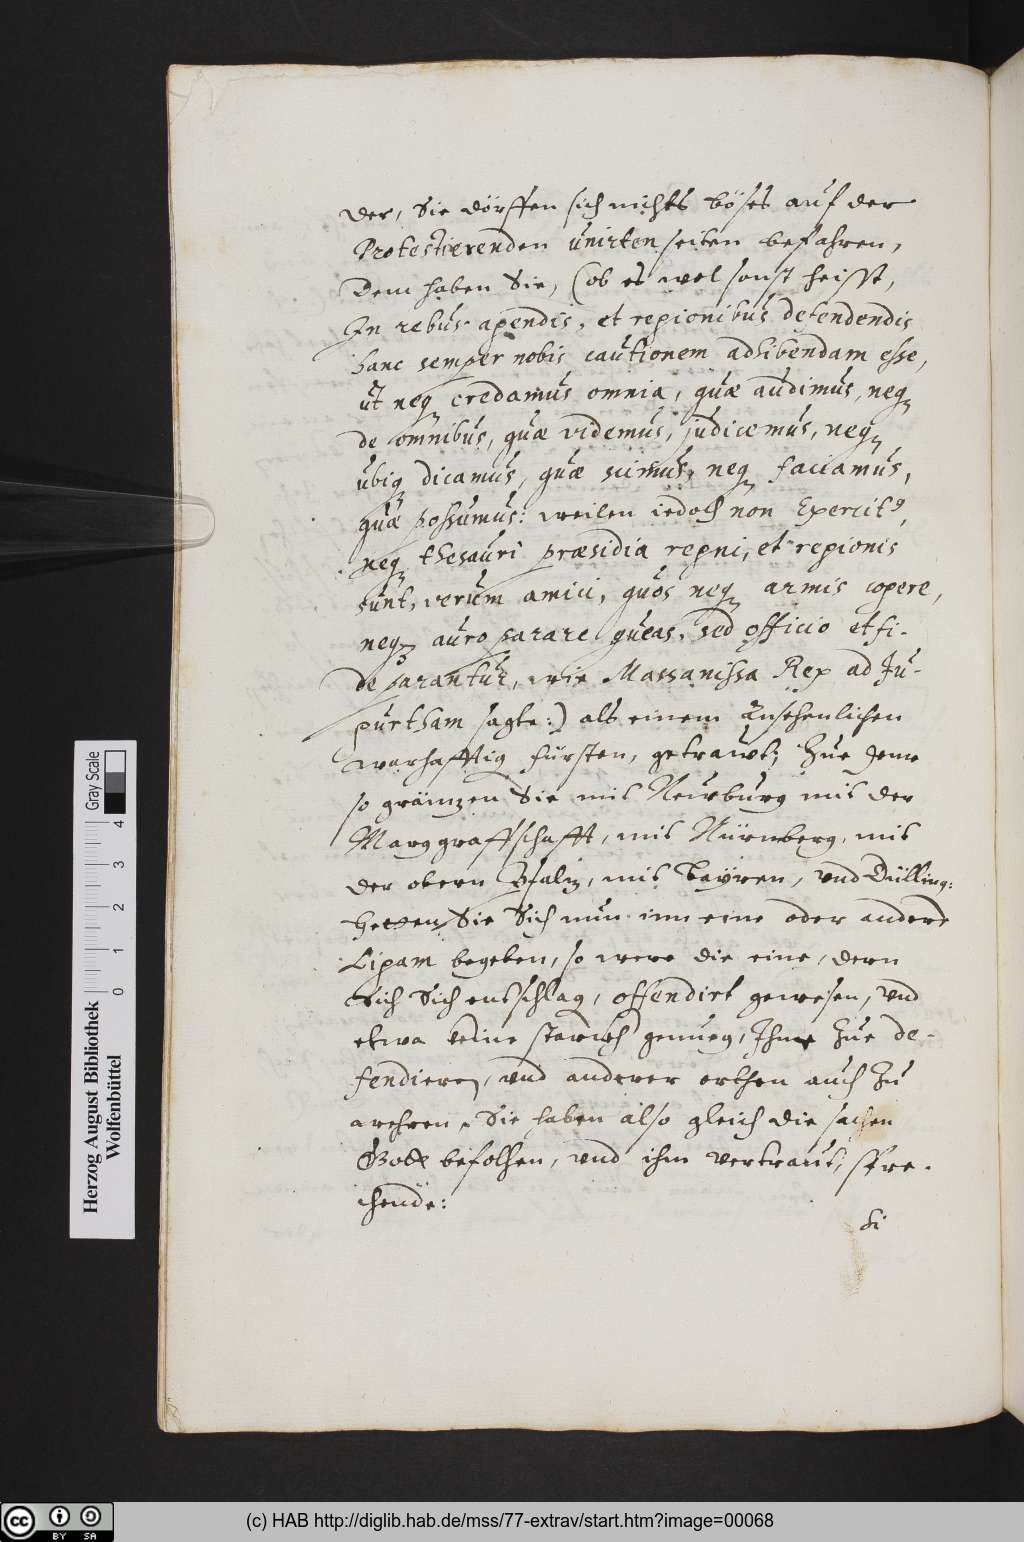 der, Sie dörffen sich nichts böses auf der
Protestierenden unirten seiten befahren,
Dem haben Sie, (ob es wol sonst heisst,
In rebus agendis, et regionibus defendendis
hanc semper nobis cautionem adhibendam esse,
ut neq credamus omnia, quæ audimus, neq
de omnibus, quæ videmus, judicemus, neq
ubiq dicamus, quæ scimus, neq faciamus,
quæ possumus: weilen iedoch non Exercitq,
neq thesauri præsidia regni, et regionis
sunt, verum amici, quos neq armis cogere,
neq auro parare queas, sed officio et fi-
de parantur, wie Massanissa Rex ad Ju-
gurtham sagte:) als einem Ansehenlichen
warhafftig fürsten, getrauwt; Zue deme
so gräinzen Sie mit Neuburg mit der
Marggraffschafft, mit Nürnberg, mit
der obern Pfaltz, mit Bayren, vnd Dülling:
Hetten Sie Sich nun inn eine oder andere
Ligam begeben, so were die eine, deren
Sich entschlag, offendirt gewesen, vnd
etwa keine starckh genueg, Ihne Zue de-
fendieren, vnd anderer orthen auch Zu
wehren, Sie haben also gleich die sachen
Gott befolhen, vnd ihm vertraut, spre-
chende:
Si
Herzog August Bibliothek
Wolfenbüttel
0 1 2 3 4
Gray Scale
cc BY SA
(c) HAB http://diglib.hab.de/mss/77-extrav/start.htm?image=00068